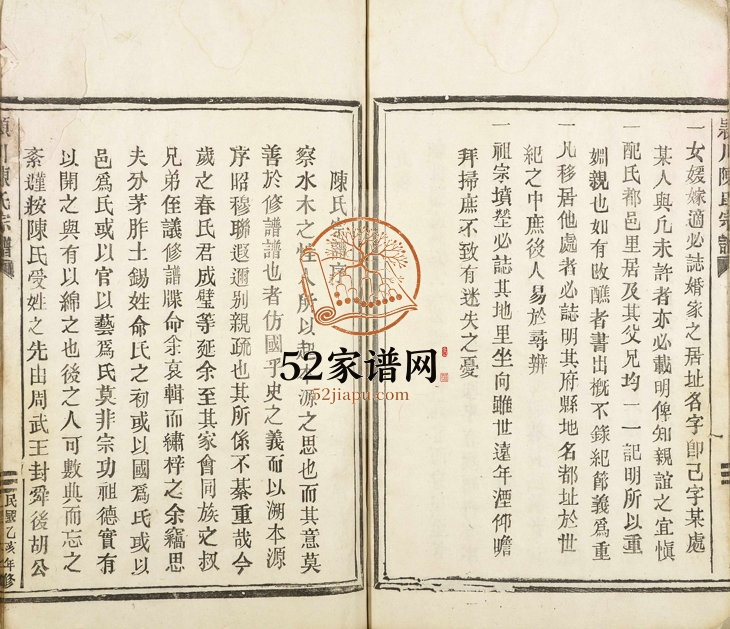 一女嫒嫁適必誌婚家之居址名字卽己字某處
某人與凢未許者亦必載明俾知親誼之宜慎
一配氏都邑里居及其父兄均一一記明所以重
婣親也如有改醮者書出概不錄紀節義爲重
一凡移居他處者必誌明其府縣地名都址於世
紀之中庶後人易於尋辨
一祖宗墳塋必誌其地里坐向雖世遠年湮仰瞻
拜掃庶不致有迷失之憂
潁川陳氏宗譜
陳氏宗譜序
察水木之性人所以起 源之思也而其意莫
善於修譜譜也者仿國乎史之義而以溯本源
序昭穆聯遐邇别親疏也其所係不綦重哉今
歲之春氏君成璧等延余至其家會同族之叔
兄弟侄議修譜牒命余裒輯而繡梓之余竊思
夫分茅胙土錫姓俞氏之初或以國爲氏或以
邑爲氏或以官以藝爲氏莫非宗功祖德實有
以開之與有以綿之也後之人可數典而忘之
紊謹按陳氏受姓之先由周武王封舜後胡公
潁川陳氏宗譜
民國乙亥年修
52家谱网
52jiapu.com